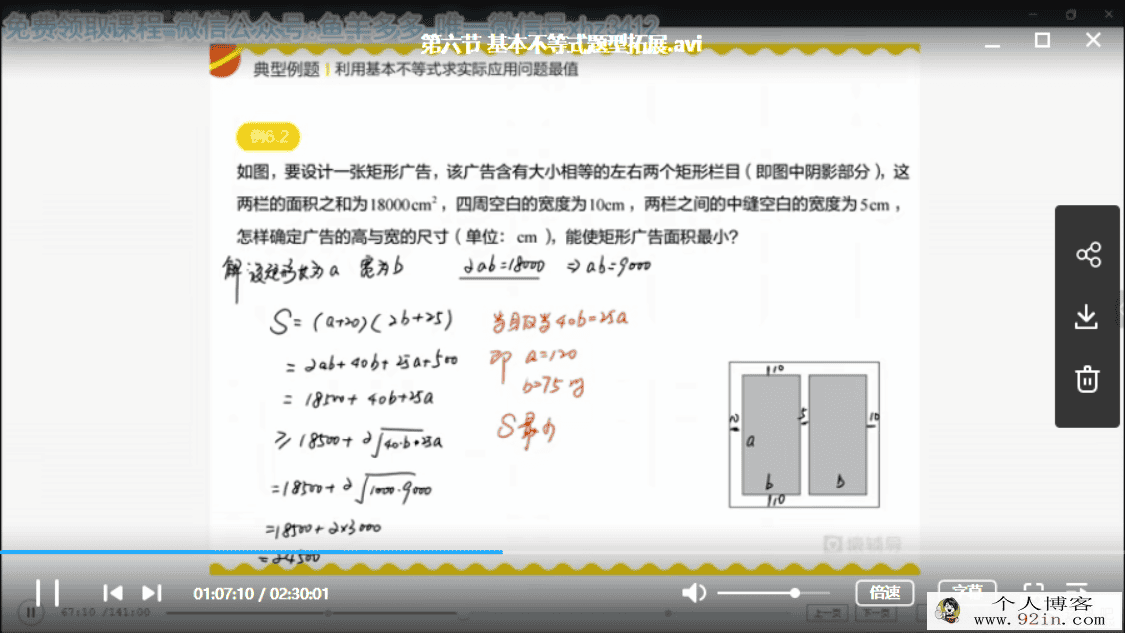 免费领取课程=微信公众号:鱼羊多多 唯一微信号
第六节 基本不等式题型拓展.avi
典型例题 | 利用基本不等式求实际应用问题最值
例6.2
如图，要设计一张矩形广告，该广告含有大小相等的左右两个矩形栏目（即图中阴影部分），这
两栏的面积之和为18000cm²，四周空白的宽度为10cm，两栏之间的中缝空白的宽度为5cm，
怎样确定广告的高与宽的尺寸（单位：cm），能使矩形广告面积最小？
解 设矩形长为a 宽为b 2ab=18000 ⇒ab=9000
S=(a+20)(2b+25)
=2ab+40b+25a+500
=18500+40b+25a
≥18500+2√40·b·25a
=18500+2√1000·9000
=18500+2×3000
=24500
当且仅当40b=25a
即 a=120
b=75时
S最小
10
5
10
a
b
b
10
猿辅导
01:07:10 / 02:30:01
倍速
字幕
67:10 /141:00
上一页
下一页
个人博客
www.92in.com